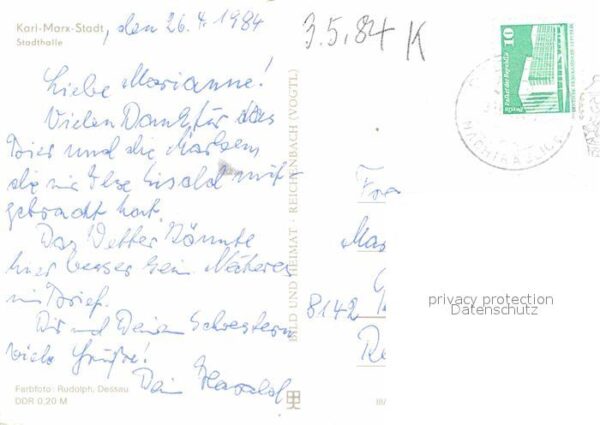 Karl-Marx-Stadt, den 26.4.1984
Stadthalle
3.5.84 K
Liebe Marianne!
Vielen Dank für das
und die Marken,
die mir Ilse mit-
gebracht hat.
Das Wetter könnte
hier besser sein. Näheres
im Brief.
Dir und Deinen Schwestern
viele Grüße!
Dein Harald
Farbfoto: Rudolph, Dessau
DDR 0,20 M
BILD UND HEIMAT · REICHENBACH (VOGTL)
III/
10
Palast der Republik
Fra
8142
privacy protection
Datenschutz